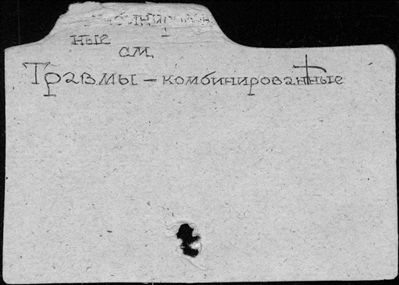 ные
см,
Травмы – комбинированные